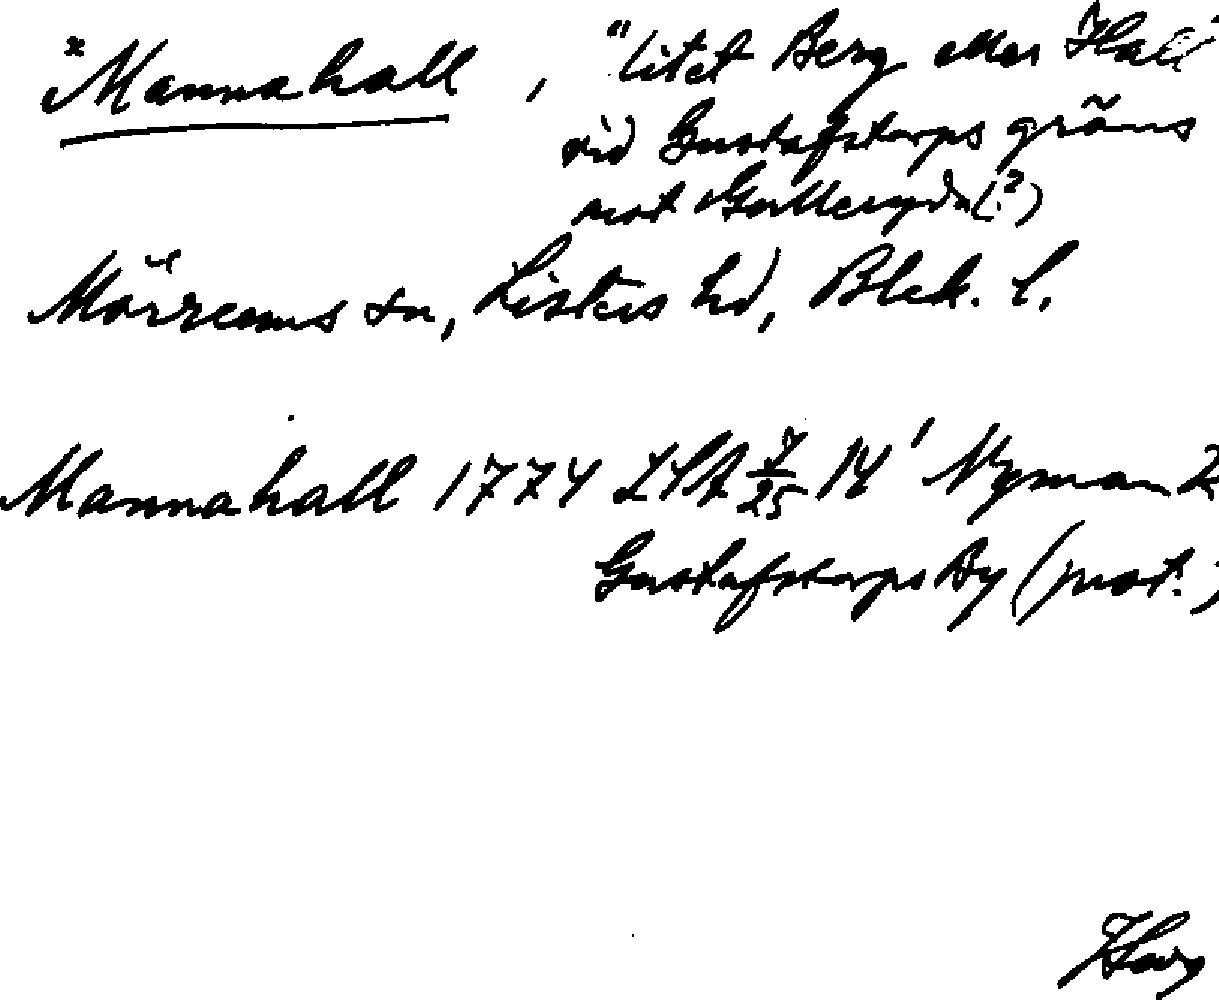 *Mannahall, "litet Berg eller Hall"
vid Gustafstorps gräns
mot Gulleryda(?)
Mörrums sn, Listers hd, Blek. l.
Mannahall 1774 LSA 7/25 14' Nyman
Gustafstorps By (prot.)